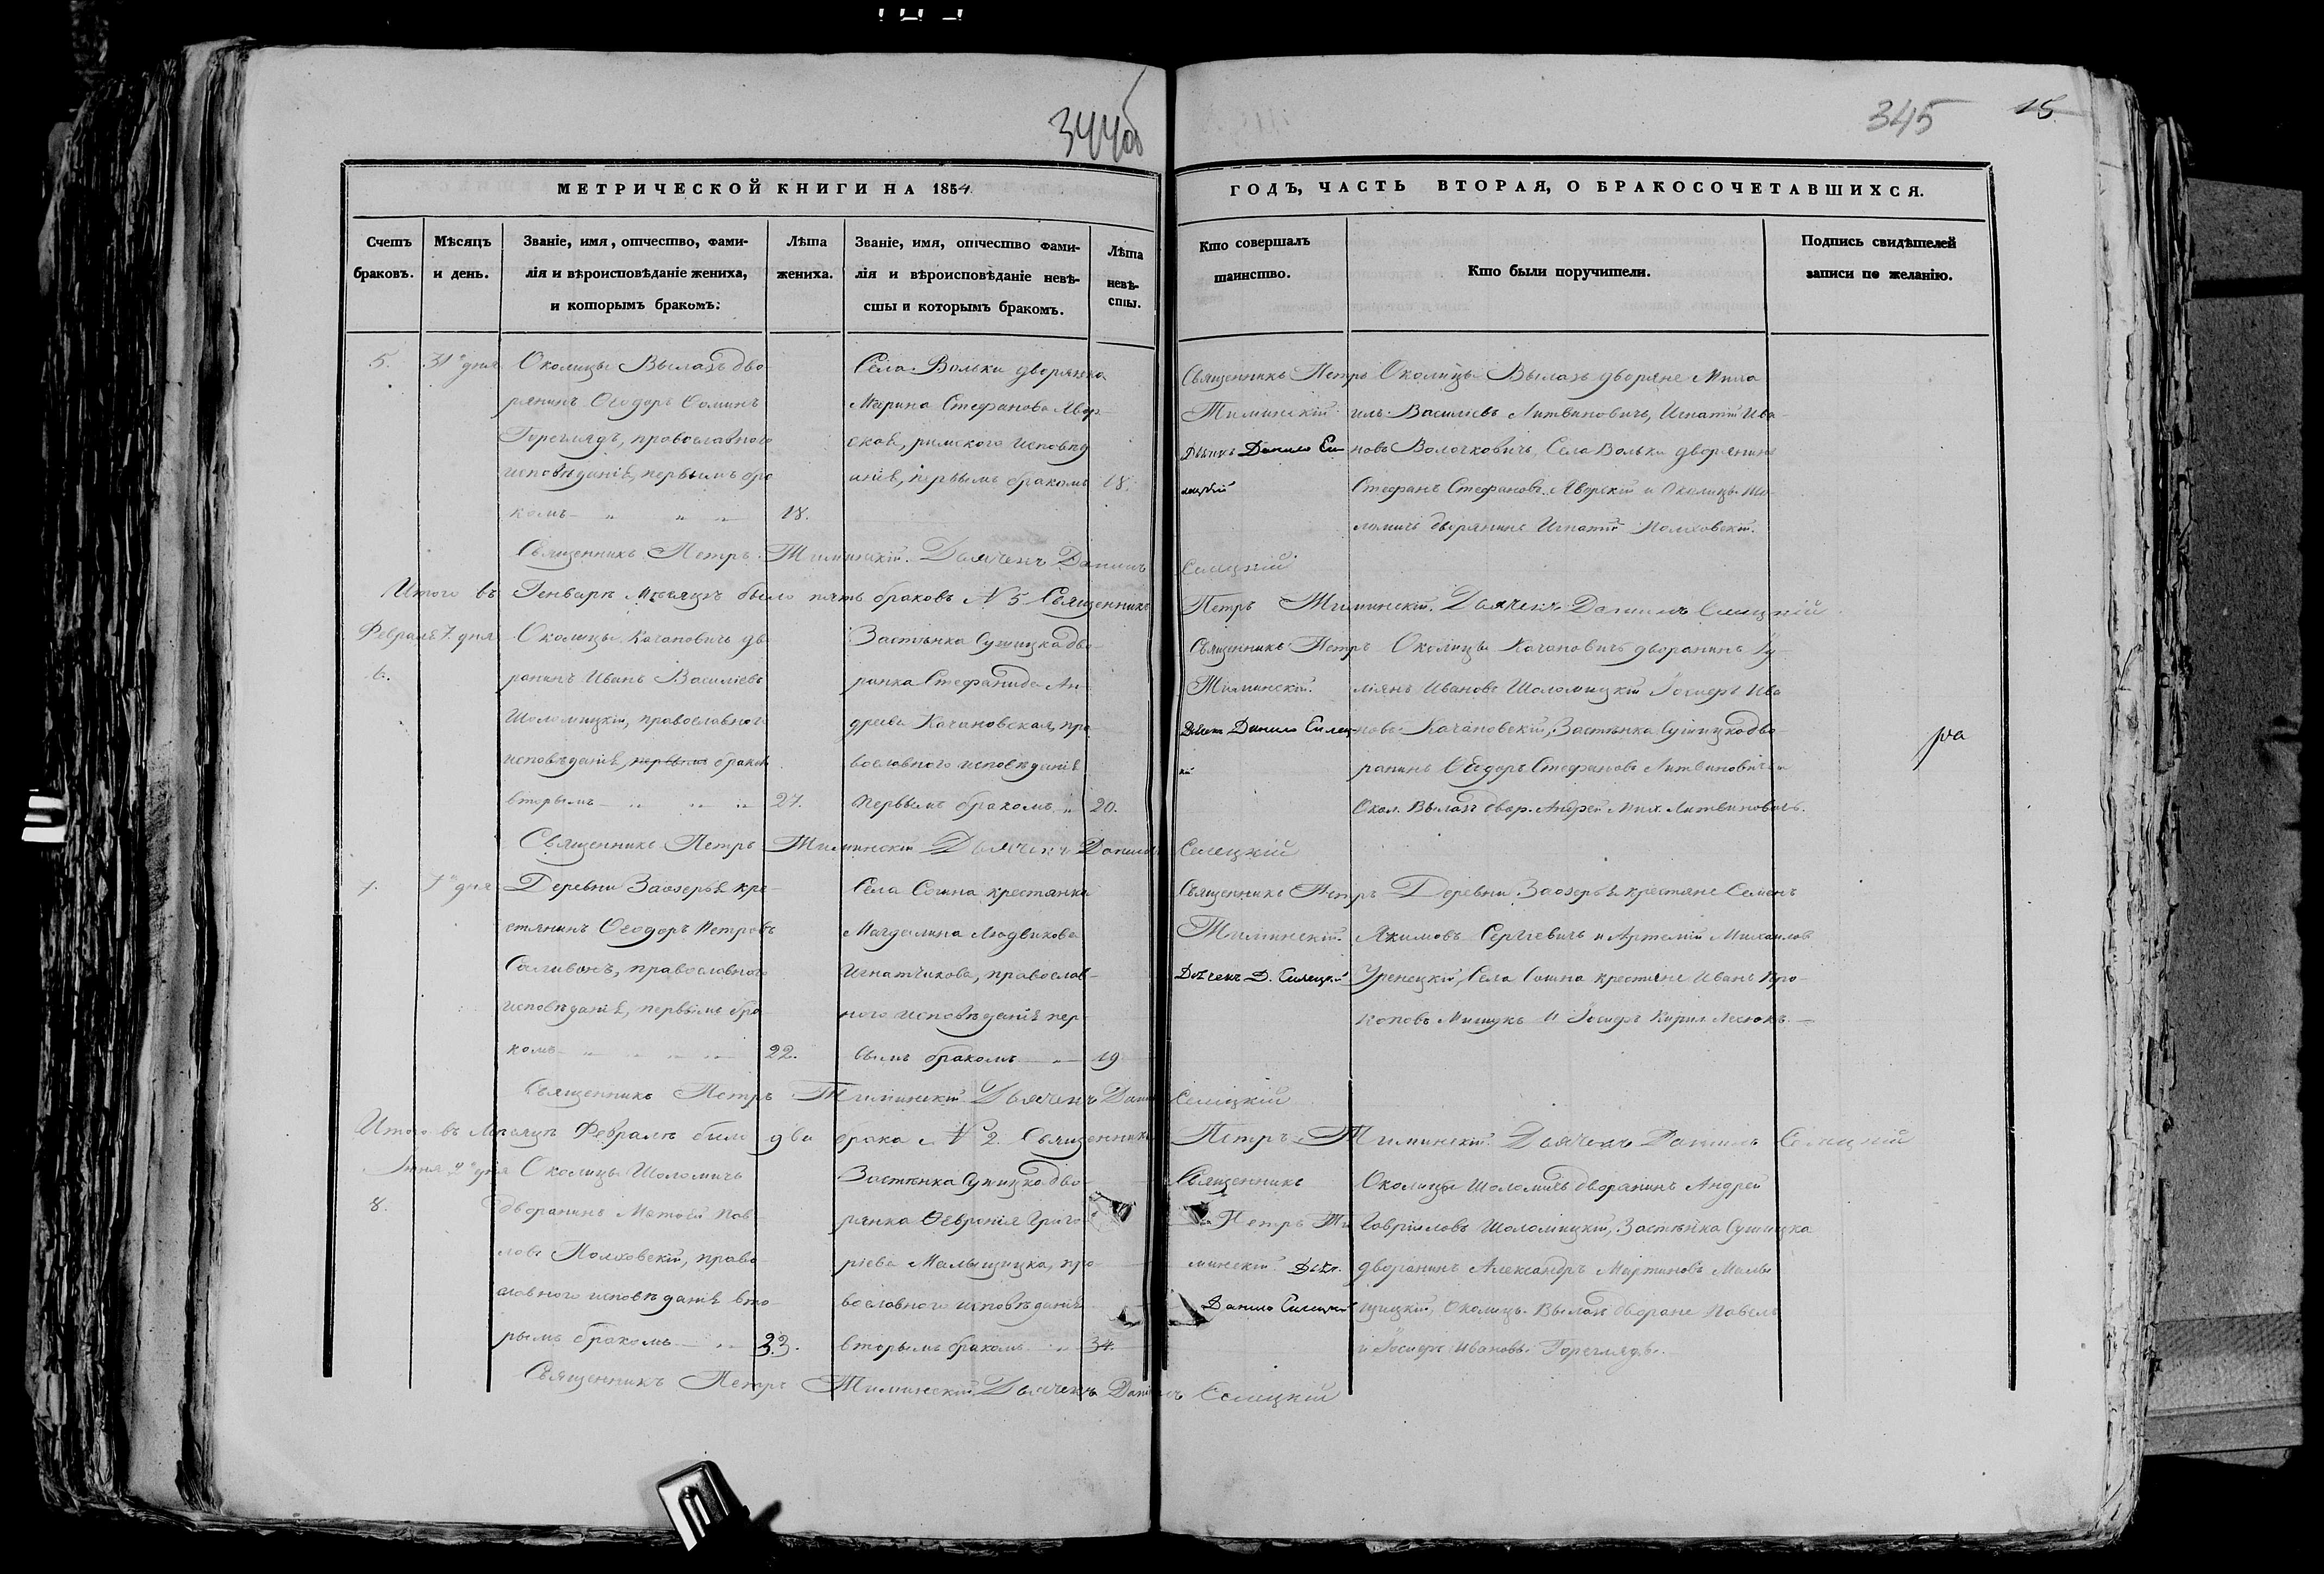 344об
345
15
МЕТРИЧЕСКОЙ КНИГИ НА 1854
ГОДЪ, ЧАСТЬ ВТОРАЯ, О БРАКОСОЧЕТАВШИХСЯ.
Счетъ браковъ.
Мѣсяцъ и день.
Званіе, имя, отчество, фами-
лія и вѣроисповѣданіе жениха,
и которымъ бракомъ.
Лѣта жениха.
Званіе, имя, отчество фами-
лія и вѣроисповѣданіе невѣ-
сты и которымъ бракомъ.
Лѣта невѣ-
сты.
Кто совершалъ
таинство.
Кто были поручители.
Подпись свидѣтелей
записи по желанію.
5.
31 дня
Околицы Вылазъ дво-
рянинъ Ѳеодоръ Фоминъ
Гореглядъ, православного
исповѣданія, первымъ бра-
комъ
18.
Села Вольки дворянка
Марина Стефанова Явор-
ская, римского исповѣд
анія, первымъ бракомъ
18.
Священникъ Петръ
Тиминскій
Дьячекъ Данило Си
лецкій
Околицы Вылазъ дворяне Миха
илъ Василіевъ Литвиновичъ, Игнатій Ива-
новъ Волочковичъ, Села Вольки дворянинъ
Стефанъ Стефановъ Яворскій и Околицы Шо-
ломичъ дворянинъ Игнатій Полховскій.
Священникъ Петръ Тиминскій. Дьячекъ Даниилъ Селецкій
Итого въ Генварѣ мѣсяцѣ было пять браковъ N 5 Священникъ Петръ Тиминскій. Дьячекъ Даниилъ Селецкій
Февраля 7. дня
6.
Околицы Качановичъ дво
ранинъ Иванъ Василіевъ
Шоломицкій, православного
исповѣданія, первымъ бракомъ
вторымъ
27.
Застѣнка Сушицка дво-
ранка Стефанида Ан-
дреева Качановская, пра-
вославного исповѣданія
первымъ бракомъ
20.
Священникъ Петръ
Тиминскій.
Дьячекъ Данило Силец-
кій
Околицы Качановичъ дворанинъ Іу-
ліянъ Ивановъ Шоломицкій Іосифъ Ива
новъ Качановскій, Застѣнка Сушицка дво-
ранинъ Ѳеодоръ Стефановъ Литвиновичъ и
Окол. Вылазъ двор. Андрей Мих. Литвиновичъ.
Священникъ Петръ Тиминскій Дьячекъ Даниилъ Селецкій
7.
7 дня
Деревни Заозерья кре-
стянинъ Ѳеодоръ Петровъ
Саливонъ, православного
исповѣданія, первымъ бра-
комъ
22.
Села Сошна крестянка
Магдалина Людвикова
Игнатчикова, православ-
ного исповѣданія пер-
вымъ бракомъ
19
Священникъ Петръ
Тиминскій.
Дьячекъ Д. Силецкій
Деревни Заозерья крестяне Семенъ
Якимовъ Сергіевичъ и Артемій Михаилов
Уренецкій, Села Сошна крестяне Иванъ Про-
коповъ Мишукъ и Іосифъ Кирил. Леснокъ.
Священникъ Петръ Тиминскій Дьячекъ Даниилъ Селецкій
Итого въ мѣсяцѣ Февралѣ было два брака N 2. Священникъ Петръ Тиминскій Дьячекъ Даниилъ Селецкій
дня
8.
Околицы Шоломичъ
дворанинъ Матѳей Пав-
ловъ Полховскій, право-
славного исповѣданія вто-
рымъ бракомъ
33.
Застѣнка Сушицка дво-
рянка Ѳевронія Григо-
ріева Малыщицка, пра-
вославного исповѣданія
вторымъ бракомъ
34.
Священникъ
Петръ Ти
минскій Дьяч.
Данило Силецкій
Околицы Шоломичъ дворанинъ Андрей
Гавріиловъ Шоломицкій, Застѣнка Сушицка
дворанинъ Александръ Мартиновъ Малы
щицкій, Околицы Вылазъ дворане Павелъ
и Іосифъ Ивановы Горегляды.
Священникъ Петръ Тиминскій Дьячекъ Даниилъ Селецкій